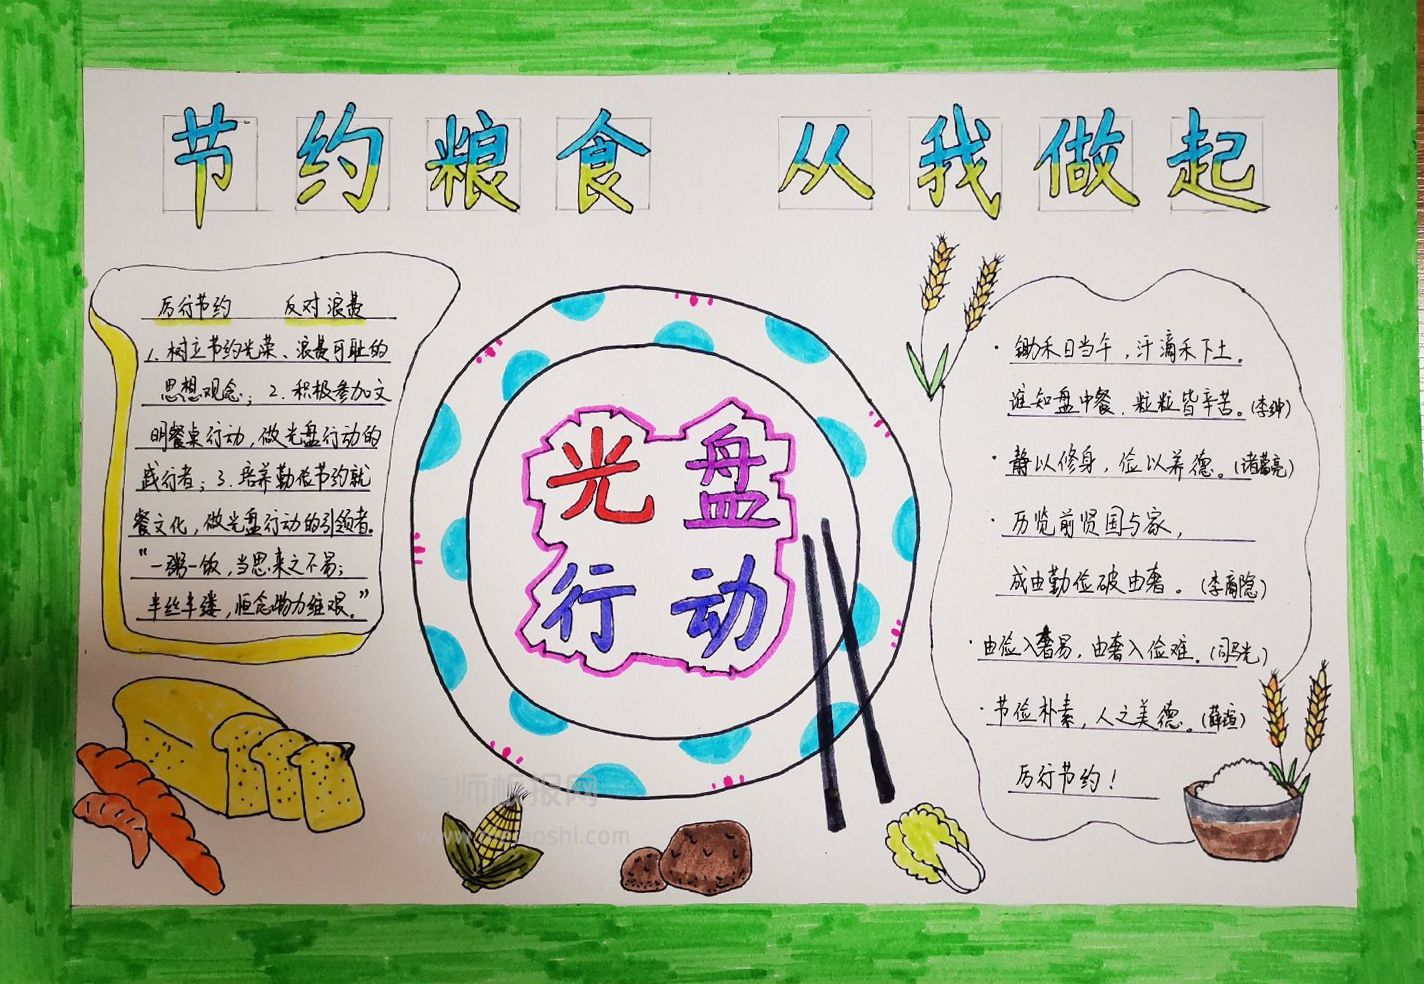 节约粮食 从我做起
厉行节约 反对浪费
1. 树立节约光荣、浪费可耻的
思想观念；2. 积极参加文
明餐桌行动，做光盘行动的
践行者；3. 培养勤俭节约就
餐文化，做光盘行动的引领者。
“一粥一饭，当思来之不易；
半丝半缕，恒念物力维艰。”
光盘
行动
·锄禾日当午，汗滴禾下土。
谁知盘中餐，粒粒皆辛苦。(李绅)
·静以修身，俭以养德。(诸葛亮)
·历览前贤国与家，
成由勤俭破由奢。(李商隐)
·由俭入奢易，由奢入俭难。(司马光)
·节俭朴素，人之美德。(薛瑄)
厉行节约！
老师板报网